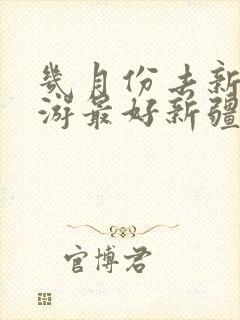 幾月份去新
游最好新疆
官博君